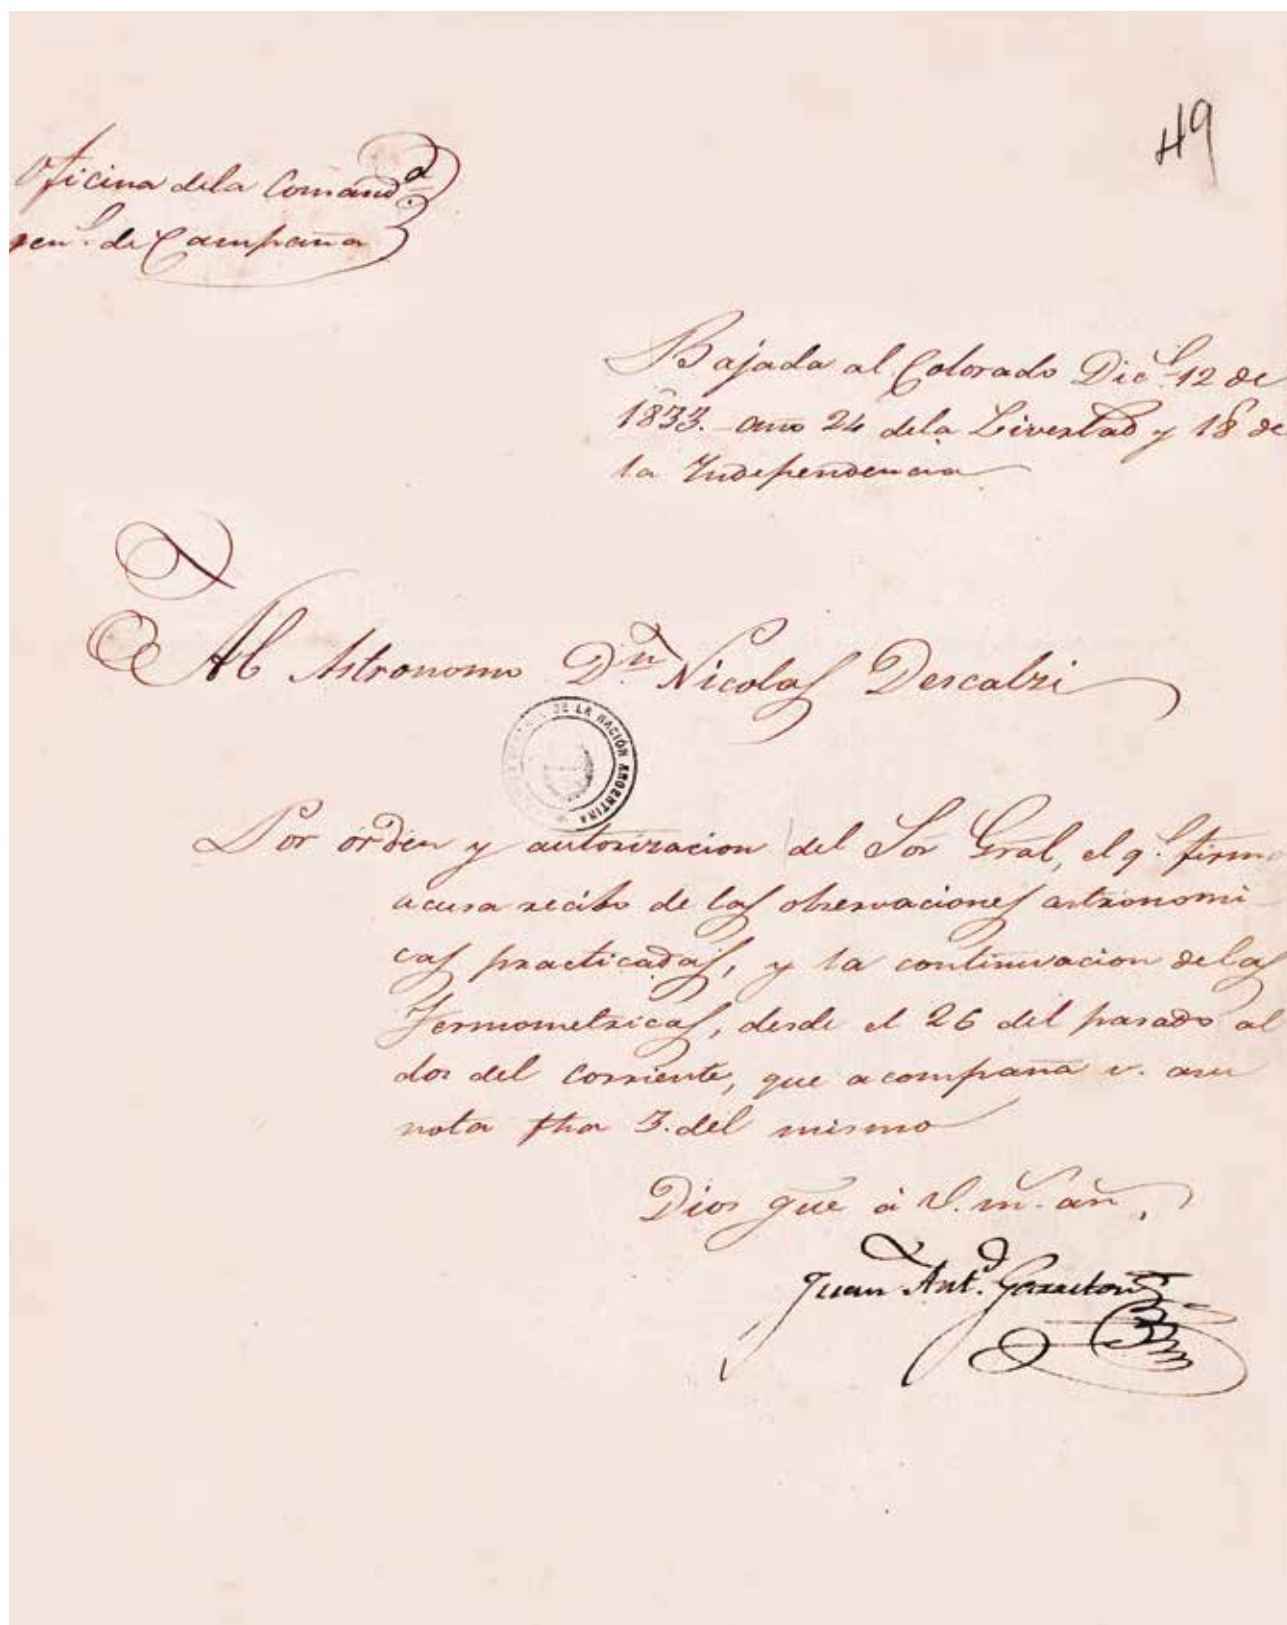 49
Oficina dela Comand.a
Gen.l de Campaña
Bajada al Colorado Dic.e 12 de
1833. año 24 dela Livertad y 18 de
la Independencia
Al Astronomo Dn Nicolas Descalzi
DE LA NACIÓN ARGENTINA
Por órden y autorizacion del Sor Gral, el q.e firma
acusa recibo de las observaciones astronomi
cas practicadas, y la continuacion delas
Termometricas, desde el 26 del pasado al
dos del corriente, que acompaña v. asu
nota fha 3. del mismo
Dios gue á V. m.s añ.s
Juan Ant.o Garreton